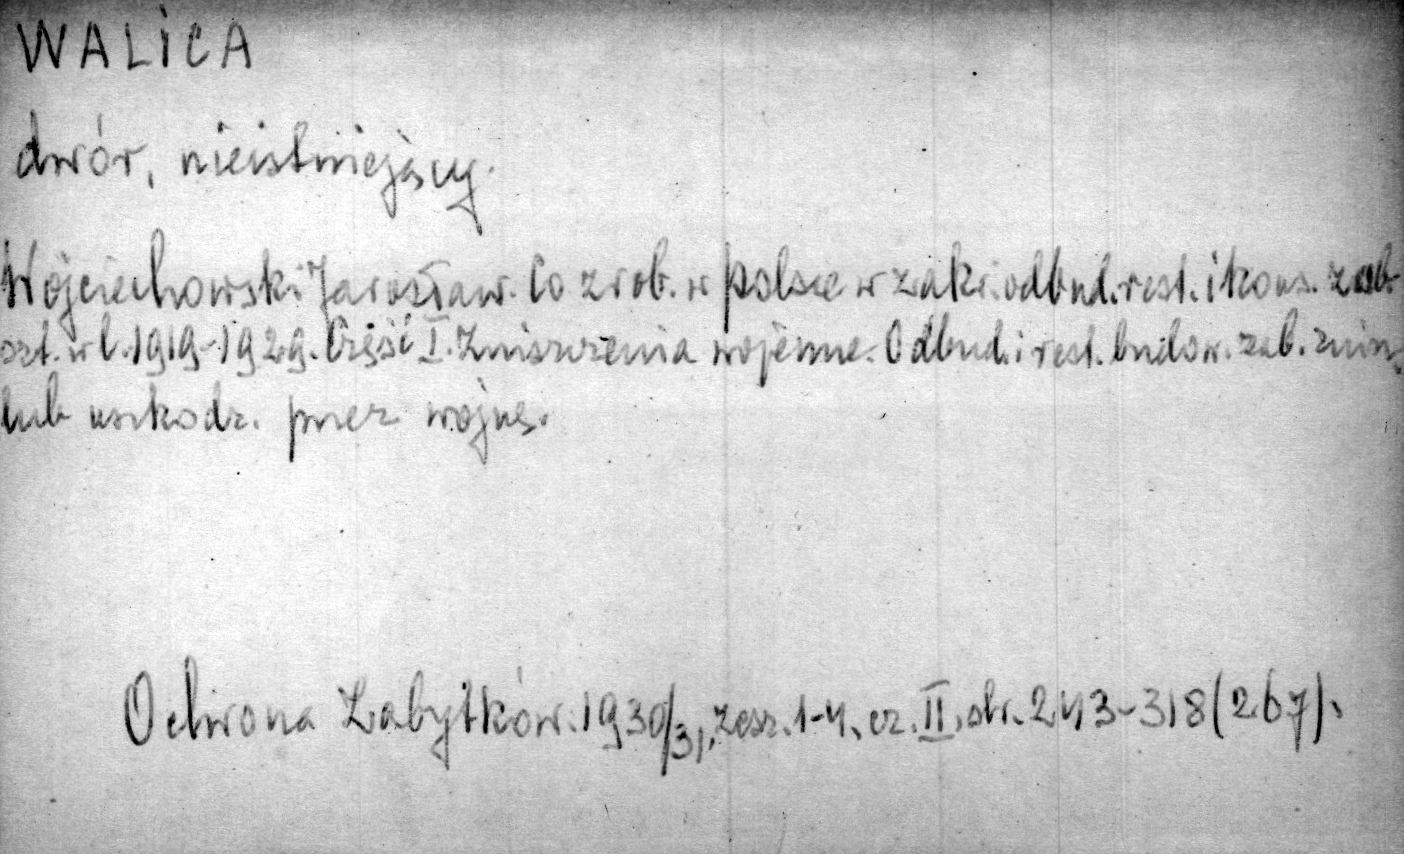 WALICA
dwór, nieistniejący.
Wojciechowski Jarosław. Co zrob. w Polsce w zakr. odbud. rest. i kons. zab.
szt. w l. 1919-1929. Część I. Zniszczenia wojenne. Odbud. i rest. budow. zab. zniszcz.
lub uszkodz. przez wojnę.
Ochrona Zabytków. 1930/31, zesz. 1-4, cz. II, str. 243-318 (267).